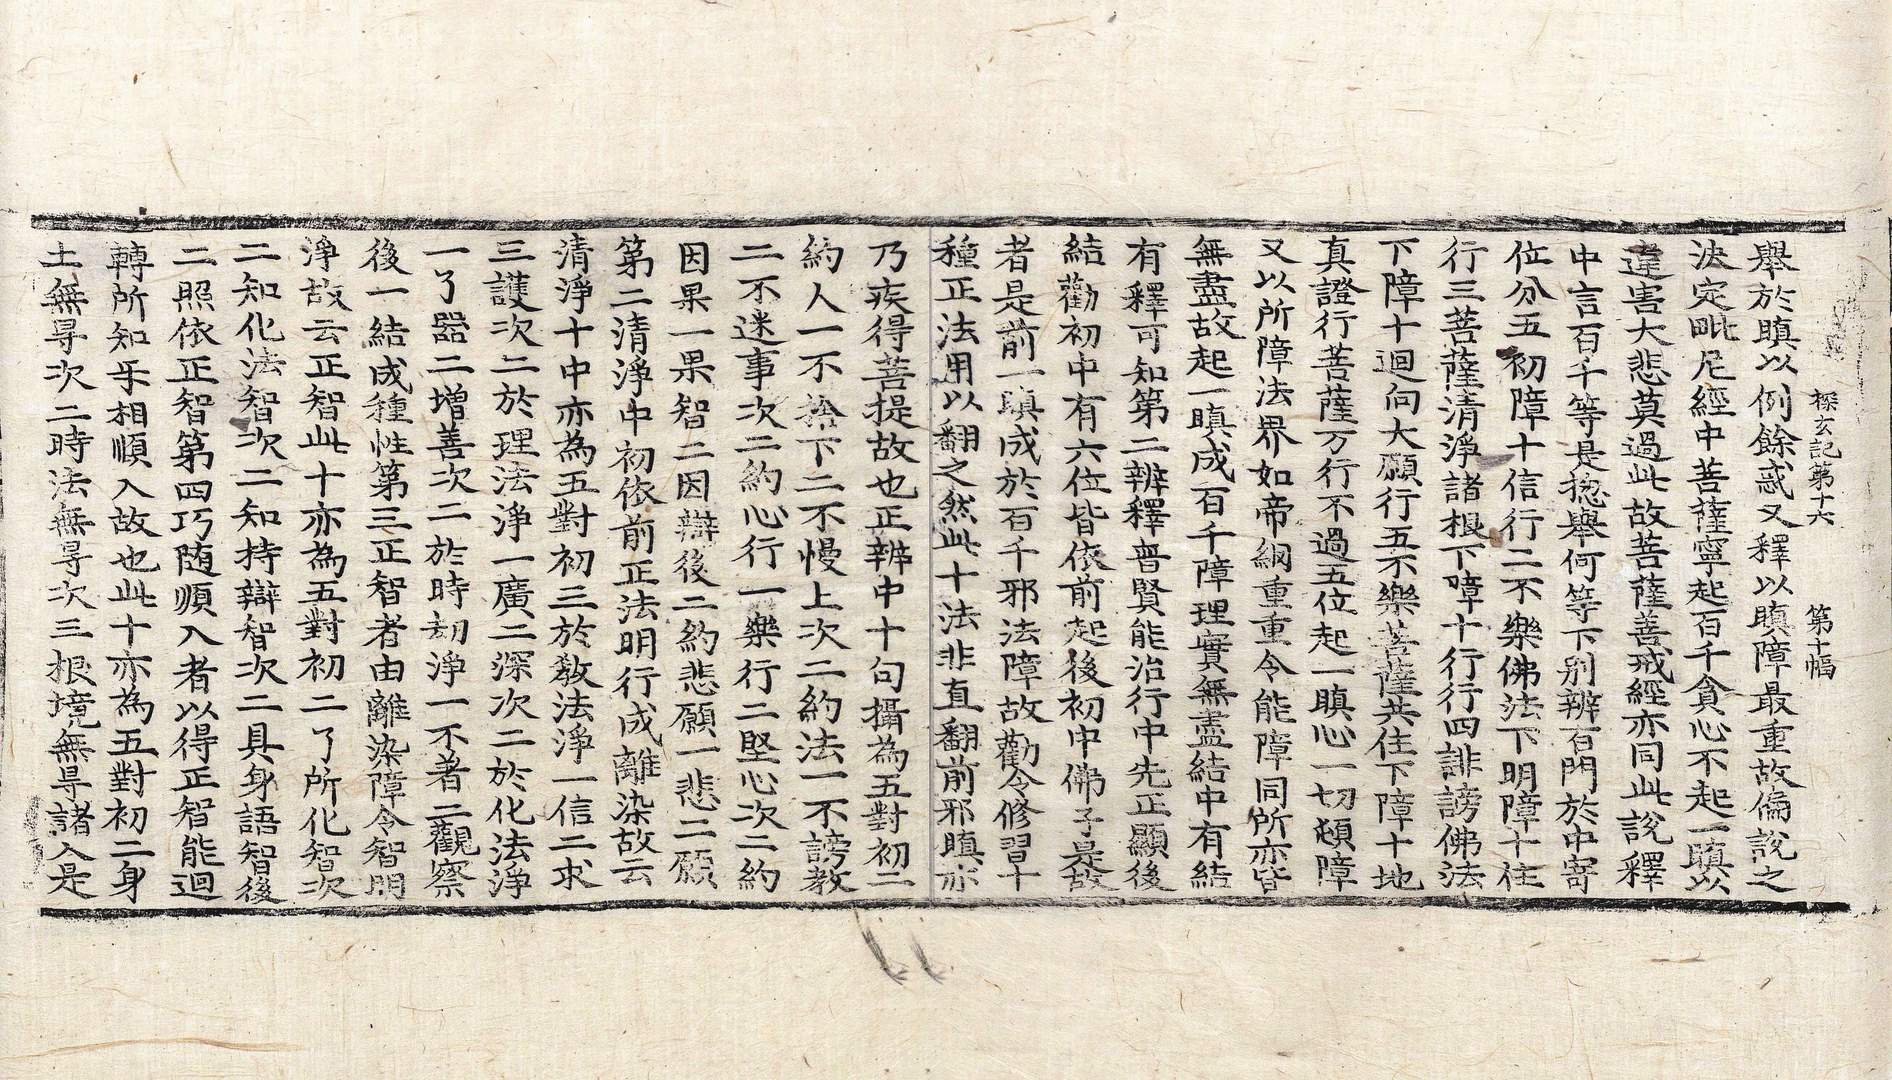 探玄記第十六　第十幅
舉於瞋以例餘惑又釋以瞋障最重故偏說之
決定毗尼經中菩薩寧起百千貪心不起一瞋以
違害大悲莫過此故菩薩善戒經亦同此說釋
中言百千等是揔舉何等下別辨百門於中寄
位分五初障十信行二不樂佛法下明障十住
行三菩薩清淨諸根下障十行行四誹謗佛法
下障十迴向大願行五不樂菩薩共住下障十地
真證行菩薩万行不過五位起一瞋心一切頓障
又以所障法界如帝網重重令能障同所亦皆
無盡故起一瞋成百千障理實無盡結中有結
有釋可知第二辨釋普賢能治行中先正顯後
結勸初中有六位皆依前起後初中佛子是故
者是前一瞋成於百千邪法障故勸令修習十
種正法用以翻之然此十法非直翻前邪瞋亦
乃疾得菩提故也正辨中十句攝為五對初二
約人一不捨下二不慢上次二約法一不謗教
二不迷事次二約心行一樂行二堅心次二約
因果一果智二因辯後二約悲願一悲二願
第二清淨中初依前正法明行成離染故云
清淨十中亦為五對初三於教法淨一信二求
三護次二於理法淨一廣二深次二於化法淨
一了器二增善次二於時劫淨一不著二觀察
後一結成種性第三正智者由離染障令智明
淨故云正智此十亦為五對初二了所化智次
二知化法智次二知持辯智次二具身語智後
二照依正智第四巧随順入者以得正智能迴
轉所知㸦相順入故也此十亦為五對初二身
土無㝵次二時法無㝵次三根境無㝵諸入是